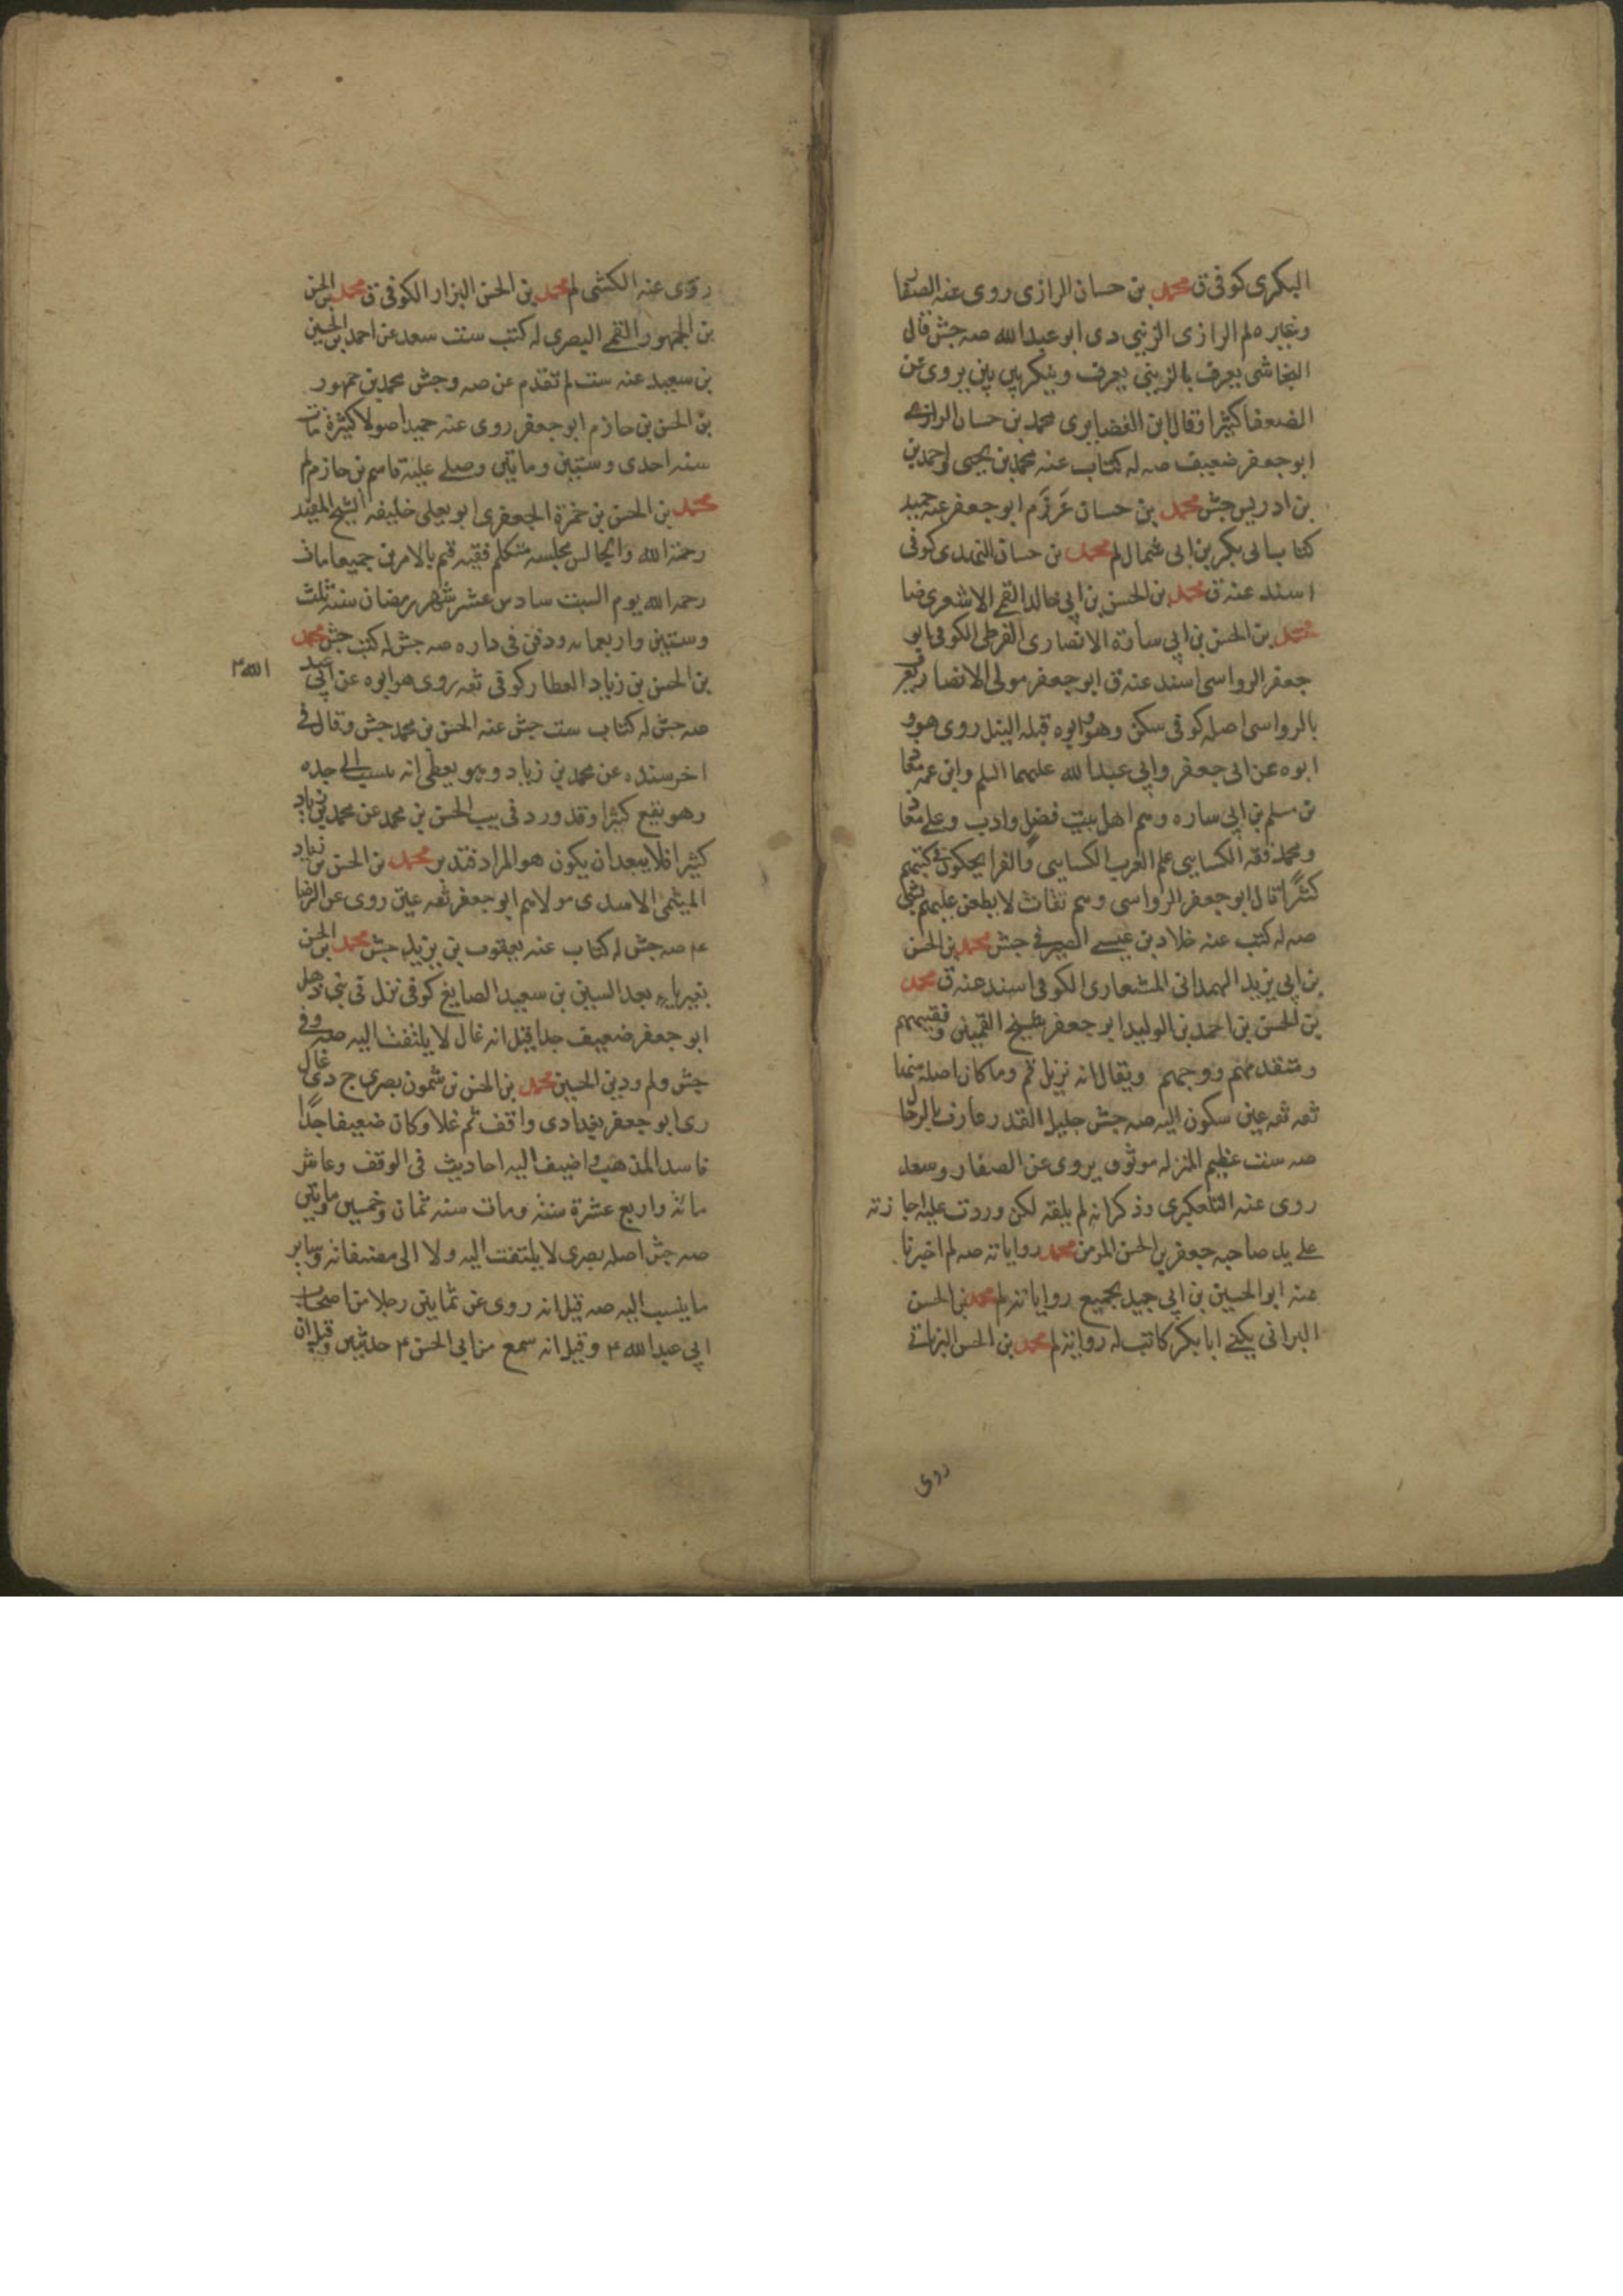 البكرى كوفى ق محمد بن حسان الرازى روى عنه الصفا
وغيره لم الرازى الزينبى دى ابو عبد الله صه جش قال
النجاشى يعرف بالزينبى يعرف وينكر بين بين يروى عن
الضعفا كثيرا وقال ابن الغضايرى محمد بن حسان الرازى
ابو جعفر ضعيف صه له كتاب عنه محمد بن يحيى احمد بن
بن ادريس جش محمد بن حسان عرزم ابو جعفر عنه حميد
كتاب ابى بكر بن ابى شمال لم محمد بن حسان النهدى كوفى
اسند عنه ق محمد بن الحسن بن ابى خالد القمى الاشعرى ضا
محمد بن الحسن بن ابى سارة الانصارى القرظى الكوفى ابو
جعفر الرواسى اسند عنه ق ابو جعفر مولى الانصار يعرف
بالرواسى اصله كوفى سكن وهو ابوه قبله النيل روى هو و
ابوه عن ابى جعفر وابى عبد الله عليهما السلم وابن عمه معا
بن مسلم بن ابى ساره وهم اهل بيت فضل وادب وعلى معا
ومحمد فقه الكسايى علم العرب الكسايى والفرا يحكون فى كتبهم
كثيرا قال ابو جعفر الرواسى وهم ثقات لا يطعن عليهم بشى
صه له كتب عنه خلاد بن عيسى الصيرفى جش محمد بن الحسن
بن ابى يزيد الهمدانى المشعارى الكوفى اسند عنه ق محمد
بن الحسن بن احمد بن الوليد ابو جعفر شيخ القميين وفقيههم
ومتقدمهم ووجههم ويقال انه نزيل قم وما كان اصله منها
ثقه ثقه عين سكون اليه صه جش جليل القدر عارف بالرجا
صه ست عظيم المنزله موثوق يروى عن الصفار وسعد
روى عنه التلعكبرى وذكر انه لم يلقه لكن وردت عليه اجازته
على يد صاحبه جعفر بن الحسن المومن محمد رواياته صه لم اخبرنا
عنه ابو الحسين بن ابى جيد بجميع رواياته لم محمد بن الحسن
البرانى يكنى ابا بكر كاتب له روايه لم محمد بن الحسن البراثى
روى
روى عنه الكشى لم محمد بن الحسن البزار الكوفى ق محمد بن الحسن
بن الجمهور القمى البصرى له كتب ست سعد عن احمد بن الحسين
بن سعيد عنه ست لم تقدم عن صه وجش محمد بن جمهور
بن الحسن بن حازم ابو جعفر روى عنه حميد اصولا كثيرة مات
سنه احدى وستين وماتين وصلى عليه قاسم بن حازم لم
محمد بن الحسن بن حمزة الجعفرى ابو يعلى خليفه الشيخ المفيد
رحمة الله والجالس مجلسه متكلم فقيه قيم بالامرين جميعا مات
رحمه الله يوم السبت سادس عشر شهر رمضان سنة ثلث
وستين واربعمايه ودفن فى داره صه جش له كتب جش محمد
بن الحسن بن زياد العطار كوفى ثقه روى هو ابوه عن ابى عبد
الله ۴
صه جش له كتاب ست جش عنه الحسن بن محمد جش وقال فى
اخر سنده عن محمد بن زياد وهو يعطى انه ينسب الى جده
وهو يقع كثيرا وقد ورد فى بيب الحسن بن محمد عن محمد بن زياد
كثيرا فلا يبعد ان يكون هو المراد فتدبر محمد بن الحسن بن زياد
الميثمى الاسدى مولاهم ابو جعفر ثقه عين روى عن الرضا
عم صه جش له كتاب عنه يعقوب بن يزيد جش محمد بن الحسن
بغير ياء بعد السين بن سعيد الصايغ كوفى نزل فى بنى ذهل
ابو جعفر ضعيف جدا قيل انه غال لا يلتفت اليه صه وفى
جش ولم ودين الحسين محمد بن الحسن بن شمون بصرى ج دى غال
رى ابو جعفر بغدادى واقف ثم غلا وكان ضعيفا جدا
فاسد المذهب واضيف اليه احاديث فى الوقف وعاش
مائة واربع عشرة سنة ومات سنه ثمان وخمسين وماتين
صه جش اصله بصرى لا يلتفت اليه ولا الى مصنفاته وساير
ما ينسب اليه صه قيل انه روى عن ثمانين رجلا من اصحاب
ابى عبد الله ۴ وقيل انه سمع من ابى الحسن ۴ حديثين وقيل ان